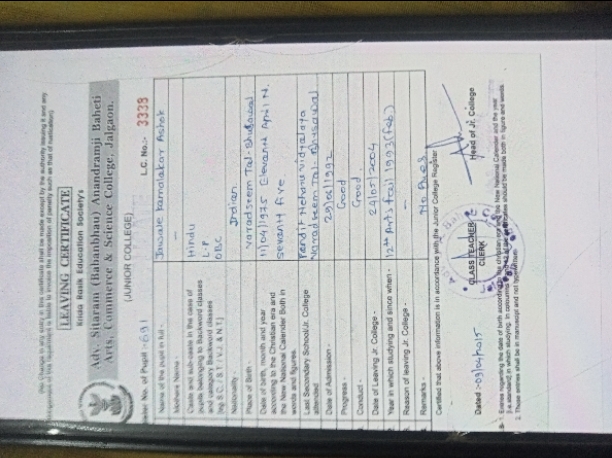 No change in any entry in this certificate shall be made except by the authority issuing it and any
LEAVING CERTIFICATE
Education Society's
Adv. Sitaram (Babanbhau) Anandramji Baheti
Arts, Commerce & Science College, Jalgaon.
(JUNIOR COLLEGE)
No. of Pupil - 691 L.C. No.- 3339
Name of the pupil in full - Kamalakar Ashok
Mothers Name - —
Caste and sub-caste in the case of Hindu
pupils belonging to Backward classes L-P
and category Backward classes OBC
Nationality - Indian
Place of Birth - Varadseem Tal-
Date of birth, month and year 11/04/1975 April
according to the Christian era and seventy five
the New National Calender Both in
words and figures.
Last Secondary School/Jr. College Pandit Nehru Vidyalaya
attended Varadseem Tal-
Date of Admission - 29/04/1992
Progress - Good
Conduct - Good
Date of Leaving Jr. College - 24/05/2004
Year in which studying and since when - 12th Arts fail 1993 (Feb)
Reason of leaving Jr. College - —
Remarks - No
Certified that above information is in accordance with the Junior College Register
Dated -03/04/2015 CLASS TEACHER Head of Jr. College
CLERK
1. Entries regarding the date of birth according to the christian era and the New National Calender and the year
in which studying, should be made both in figure and words
2. These entries shall be in manuscript and not